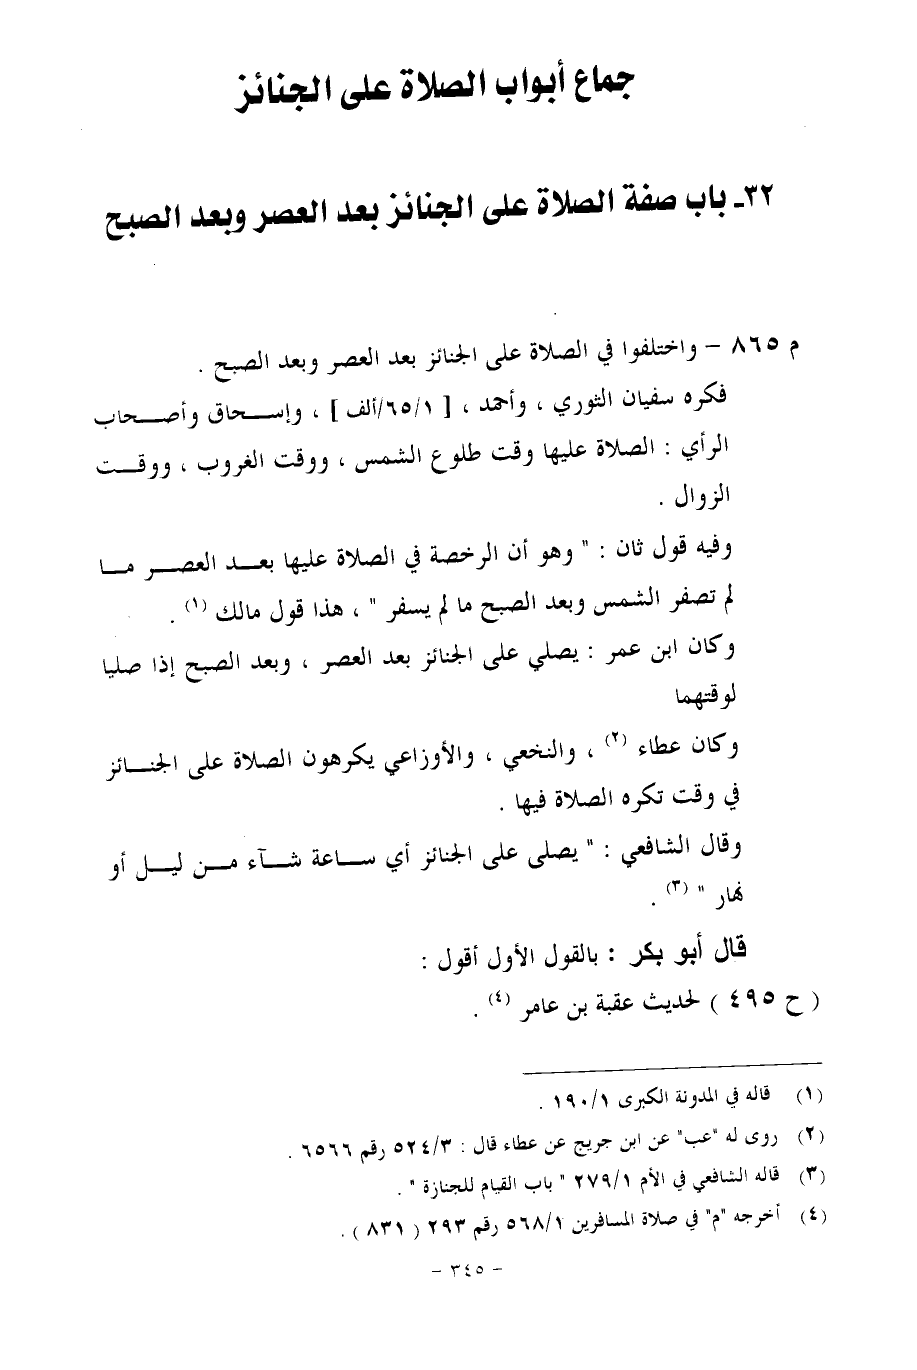 جماع أبواب الصلاة على الجنائز
٣٢ـ باب صفة الصلاة على الجنائز بعد العصر وبعد الصبح
م ٨٦٥ – واختلفوا في الصلاة على الجنائز بعد العصر وبعد الصبح .
فكره سفيان الثوري ، وأحمد ، [ ٦٥/١/ألف ] ، وإسحاق وأصحاب
الرأي : الصلاة عليها وقت طلوع الشمس ، ووقت الغروب ، ووقت
الزوال .
وفيه قول ثان : " وهو أن الرخصة في الصلاة عليها بعد العصر ما
لم تصفر الشمس وبعد الصبح ما لم يسفر " ، هذا قول مالك (١) .
وكان ابن عمر : يصلي على الجنائز بعد العصر ، وبعد الصبح إذا صليا
لوقتهما
وكان عطاء (٢) ، والنخعي ، والأوزاعي يكرهون الصلاة على الجنائز
في وقت تكره الصلاة فيها .
وقال الشافعي : " يصلى على الجنائز أي ساعة شآء من ليل أو
نهار " (٣) .
قال أبو بكر : بالقول الأول أقول :
( ح ٤٩٥ ) لحديث عقبة بن عامر (٤) .
(١) قاله في المدونة الكبرى ١٩٠/١ .
(٢) روى له "عب" عن ابن جريج عن عطاء قال : ٥٢٤/٣ رقم ٦٥٦٦ .
(٣) قاله الشافعي في الأم ٢٧٩/١ " باب القيام للجنازة " .
(٤) أخرجه "م" في صلاة المسافرين ٥٦٨/١ رقم ٢٩٣ ( ٨٣١ ) .
– ٣٤٥ –